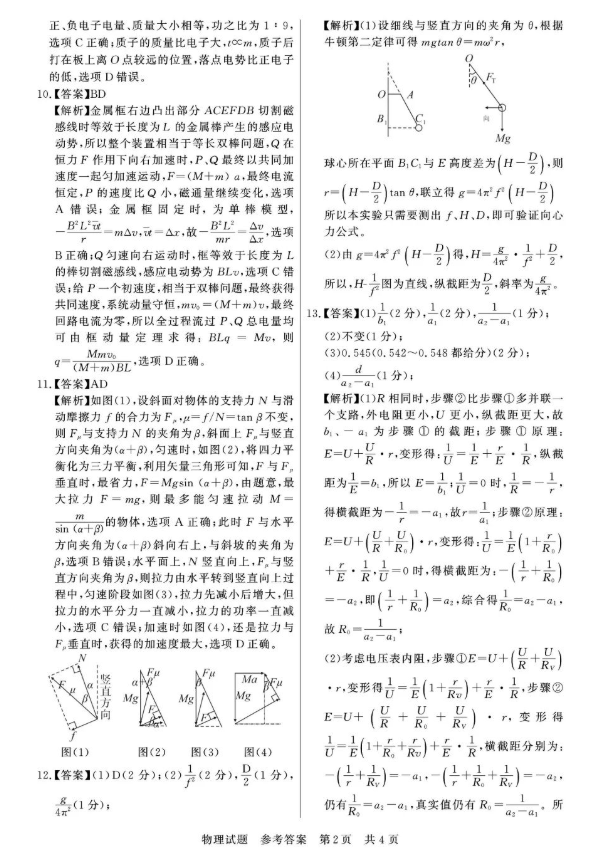 正、负电子电量、质量大小相等,功之比为 1∶9,
选项 C 正确;质子的质量比电子大,t∝m,质子后
打在板上离 O 点较远的位置,落点电势比正电子
的低,选项 D 错误。
10.【答案】BD
【解析】金属框右边凸出部分 ACEFDB 切割磁
感线时等效于长度为 L 的金属棒产生的感应电
动势,所以整个装置相当于等长双棒问题,Q 在
恒力 F 作用下向右加速时,P、Q 最终以共同加
速度一起匀加速运动,F=(M+m) a,最终电流
恒定,P 的速度比 Q 小,磁通量继续变化,选项
A 错误;金属框固定时,为单棒模型,
-B²L²v̅t/r=mΔv,v̅t=Δx,故-B²L²/mr=Δv/Δx,选项
B 正确;Q 匀速向右运动时,框等效于长度为 L
的棒切割磁感线,感应电动势为 BLv,选项 C 错
误;给 P 一个初速度,相当于双棒问题,最终获得
共同速度,系统动量守恒,mv₀=(M+m)v,最终
回路电流为零,所以全过程流过 P、Q 总电量均
可由框动量定理求得:BLq = Mv,则
q=Mmv₀/(M+m)BL,选项 D 正确。
11.【答案】AD
【解析】如图(1),设斜面对物体的支持力 N 与滑
动摩擦力 f 的合力为 Fμ,μ=f/N=tan β不变,
则 Fμ与支持力 N 的夹角为β,斜面上 Fμ与竖直
方向夹角为(α+β),匀速时,如图(2),将四力平
衡化为三力平衡,利用矢量三角形可知,F 与 Fμ
垂直时,最省力,F=Mgsin (α+β),由题意,最
大拉力 F = mg,则最多能匀速拉动 M =
m/sin (α+β)的物体,选项 A 正确;此时 F 与水平
方向夹角为(α+β)斜向右上,与斜坡的夹角为
β,选项 B 错误;水平面上,N 竖直向上,Fμ与竖
直方向夹角为β,则拉力由水平转到竖直向上过
程中,匀速阶段如图(3),拉力先减小后增大,但
拉力的水平分力一直减小,拉力的功率一直减
小,选项 C 错误;加速时如图(4),还是拉力与
Fμ垂直时,获得的加速度最大,选项 D 正确。
N
Fμ
α
β
f
竖直方向
图(1)
α
β
Fμ
Mg
F
图(2)
Fμ
β
Mg
F
图(3)
Ma
Fμ
β
Mg
F
图(4)
12.【答案】(1)D(2 分);(2)1/f²(2 分),D/2(1 分),
g/4π²(1 分);
【解析】(1)设细线与竖直方向的夹角为 θ,根据
牛顿第二定律可得 mgtan θ=mω²r,
O
A
B₁
C₁
O
θ
F_T
向
Mg
球心所在平面 B₁C₁与 E 高度差为(H-D/2),则
r=(H-D/2)tan θ,联立得 g=4π²f²(H-D/2)
所以本实验只需要测出 f、H、D,即可验证向心
力公式。
(2)由 g=4π²f²(H-D/2)得,H=g/4π²·1/f²+D/2,
所以,H-1/f²图为直线,纵截距为D/2,斜率为g/4π²。
13.【答案】(1)1/b₁(2 分),1/a₁(2 分),1/(a₂-a₁)(1 分);
(2)不变(1 分);
(3)0.545(0.542~0.548 都给分)(2 分);
(4)d/(a₂-a₁)(1 分);
【解析】(1)R 相同时,步骤②比步骤①多并联一
个支路,外电阻更小,U 更小,纵截距更大,故
b₁、-a₁为步骤①的截距;步骤①原理:
E=U+U/R·r,变形得:1/U=1/E+r/E·1/R,纵截
距为1/E=b₁,所以 E=1/b₁;1/U=0 时,1/R=-1/r,
得横截距为-1/r=-a₁,故r=1/a₁;步骤②原理:
E=U+(U/R+U/R₀)·r,变形得:1/U=1/E(1+r/R₀)
+r/E·1/R,1/U=0 时,得横截距为:-(1/r+1/R₀)
=-a₂,即(1/r+1/R₀)=a₂,综合得1/R₀=a₂-a₁,
故 R₀=1/(a₂-a₁);
(2)考虑电压表内阻,步骤①E=U+(U/R+U/R_V)
·r,变形得1/U=1/E(1+r/Rv)+r/E·1/R,步骤②
E=U+(U/R+U/R₀+U/R_V)·r,变形得
1/U=1/E(1+r/R₀+r/Rv)+r/E·1/R,横截距分别为:
-(1/r+1/R_V)=-a₁,-(1/r+1/R₀+1/R_V)=-a₂,
仍有1/R₀=a₂-a₁,真实值仍有 R₀=1/(a₂-a₁)。所
物理试题 参考答案 第 2 页 共 4 页